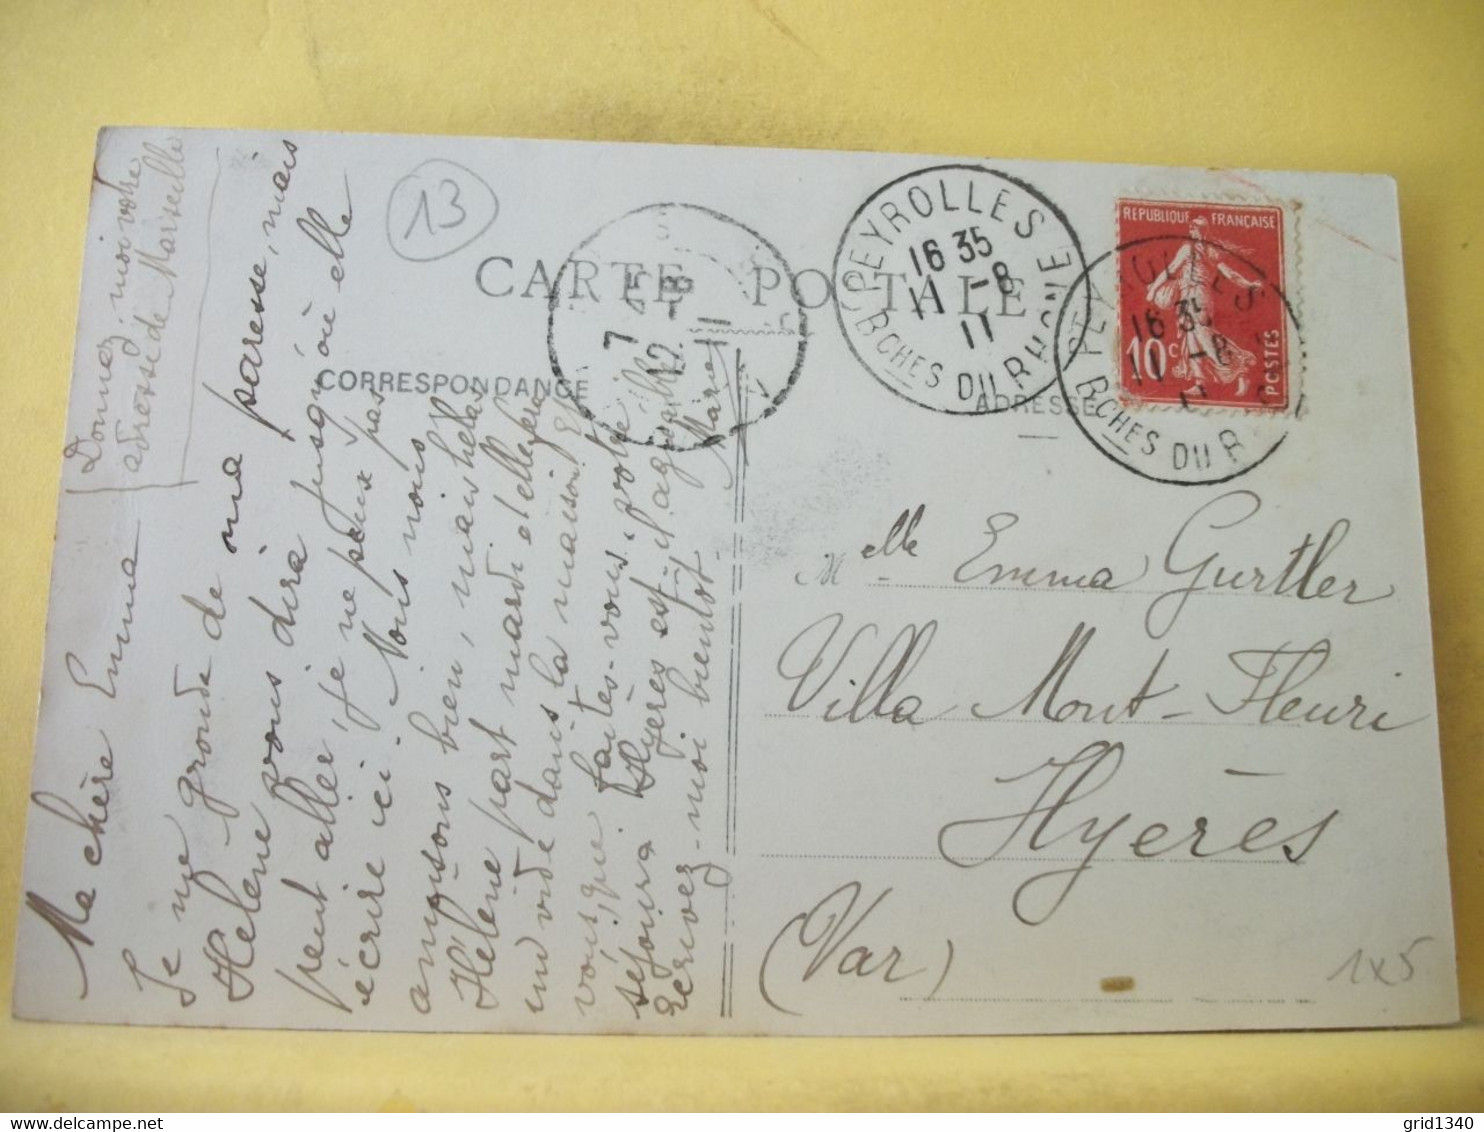 13
CARTE POSTALE
CORRESPONDANCE
ADRESSE
PEYROLLES
16 35
11 -8
11
BCHES DU RHONE
16 35
11 -8
BCHES DU R
7
12
REPUBLIQUE FRANÇAISE
10c
POSTES
Donnez moi votre
adresse de Marseille
Ma chère Emma
Je me gronde de ma paresse, mais
Hélène vous dira jusqu'où elle
peut aller, je ne peux pas
écrire ici. Nous nous
amusons bien, mais hélas
Hélène part mardi et elle fera
un vide dans la maison. Et
vous, que faites-vous, votre
séjour à Hyères est-il agréable
Ecrivez-moi bientôt.
Marie
Melle Emma Gurtler
Villa Mont-Fleuri
Hyères
(Var)
1x5
grid1340